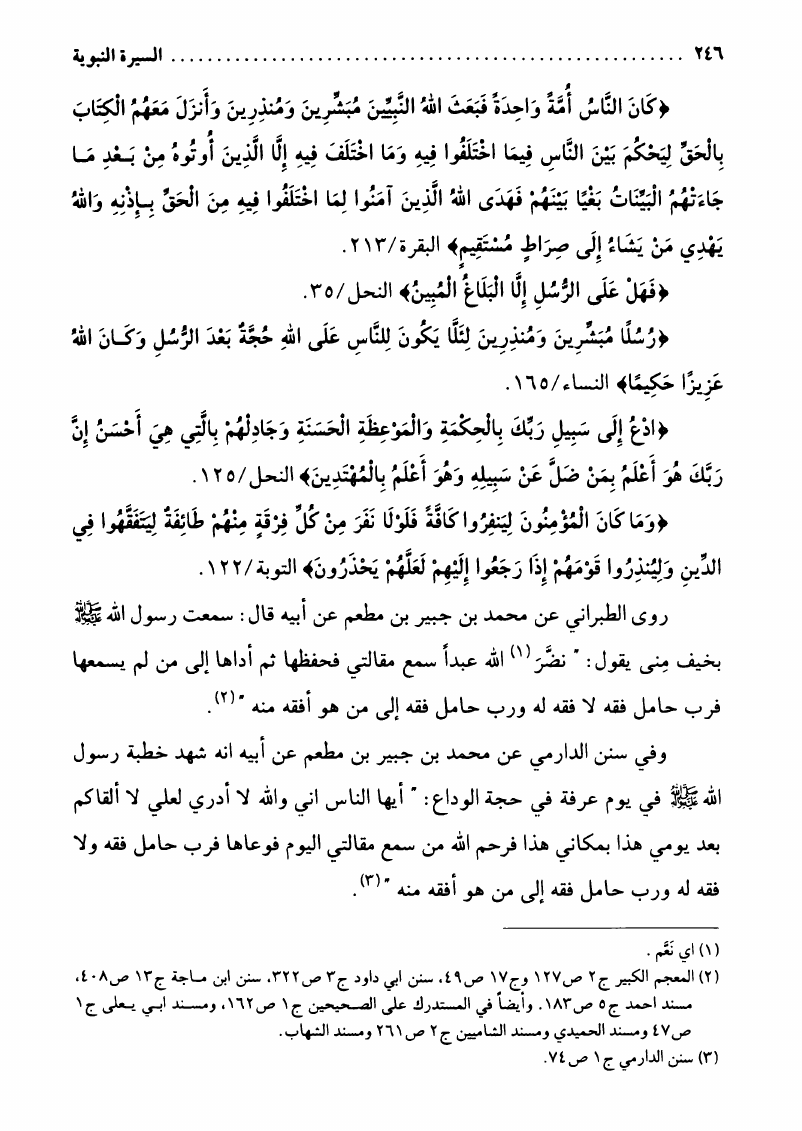 ٢٤٦ ........................................................ السيرة النبوية
﴿كَانَ النَّاسُ أُمَّةً وَاحِدَةً فَبَعَثَ اللهُ النَّبِيِّينَ مُبَشِّرِينَ وَمُنذِرِينَ وَأَنزَلَ مَعَهُمُ الْكِتَابَ
بِالْحَقِّ لِيَحْكُمَ بَيْنَ النَّاسِ فِيمَا اخْتَلَفُوا فِيهِ وَمَا اخْتَلَفَ فِيهِ إِلَّا الَّذِينَ أُوتُوهُ مِنْ بَعْدِ مَا
جَاءَتْهُمُ الْبَيِّنَاتُ بَغْيًا بَيْنَهُمْ فَهَدَى اللهُ الَّذِينَ آمَنُوا لِمَا اخْتَلَفُوا فِيهِ مِنَ الْحَقِّ بِإِذْنِهِ وَاللهُ
يَهْدِي مَنْ يَشَاءُ إِلَى صِرَاطٍ مُسْتَقِيمٍ﴾ البقرة/٢١٣.
﴿فَهَلْ عَلَى الرُّسُلِ إِلَّا الْبَلَاغُ الْمُبِينُ﴾ النحل/٣٥.
﴿رُسُلًا مُبَشِّرِينَ وَمُنذِرِينَ لِئَلَّا يَكُونَ لِلنَّاسِ عَلَى اللهِ حُجَّةٌ بَعْدَ الرُّسُلِ وَكَانَ اللهُ
عَزِيزًا حَكِيمًا﴾ النساء/١٦٥.
﴿ادْعُ إِلَى سَبِيلِ رَبِّكَ بِالْحِكْمَةِ وَالْمَوْعِظَةِ الْحَسَنَةِ وَجَادِلْهُمْ بِالَّتِي هِيَ أَحْسَنُ إِنَّ
رَبَّكَ هُوَ أَعْلَمُ بِمَنْ ضَلَّ عَنْ سَبِيلِهِ وَهُوَ أَعْلَمُ بِالْمُهْتَدِينَ﴾ النحل/١٢٥.
﴿وَمَا كَانَ الْمُؤْمِنُونَ لِيَنفِرُوا كَافَّةً فَلَوْلَا نَفَرَ مِنْ كُلِّ فِرْقَةٍ مِنْهُمْ طَائِفَةٌ لِيَتَفَقَّهُوا فِي
الدِّينِ وَلِيُنذِرُوا قَوْمَهُمْ إِذَا رَجَعُوا إِلَيْهِمْ لَعَلَّهُمْ يَحْذَرُونَ﴾ التوبة/١٢٢.
روى الطبراني عن محمد بن جبير بن مطعم عن أبيه قال: سمعت رسول الله ﷺ
بخيف مِنى يقول: " نضَّرَ(١) الله عبداً سمع مقالتي فحفظها ثم أداها إلى من لم يسمعها
فرب حامل فقه لا فقه له ورب حامل فقه إلى من هو أفقه منه "(٢).
وفي سنن الدارمي عن محمد بن جبير بن مطعم عن أبيه انه شهد خطبة رسول
الله ﷺ في يوم عرفة في حجة الوداع: " أيها الناس اني والله لا أدري لعلي لا ألقاكم
بعد يومي هذا بمكاني هذا فرحم الله من سمع مقالتي اليوم فوعاها فرب حامل فقه ولا
فقه له ورب حامل فقه إلى من هو أفقه منه "(٣).
(١) اي نَعَّم .
(٢) المعجم الكبير ج٢ ص١٢٧ وج١٧ ص٤٩، سنن ابي داود ج٣ ص٣٢٢، سنن ابن ماجة ج١٣ ص٤٠٨،
مسند احمد ج٥ ص١٨٣. وأيضاً في المستدرك على الصحيحين ج١ ص١٦٢، ومسند ابي يعلى ج١
ص٤٧ ومسند الحميدي ومسند الشاميين ج٢ ص٢٦١ ومسند الشهاب.
(٣) سنن الدارمي ج١ ص٧٤.